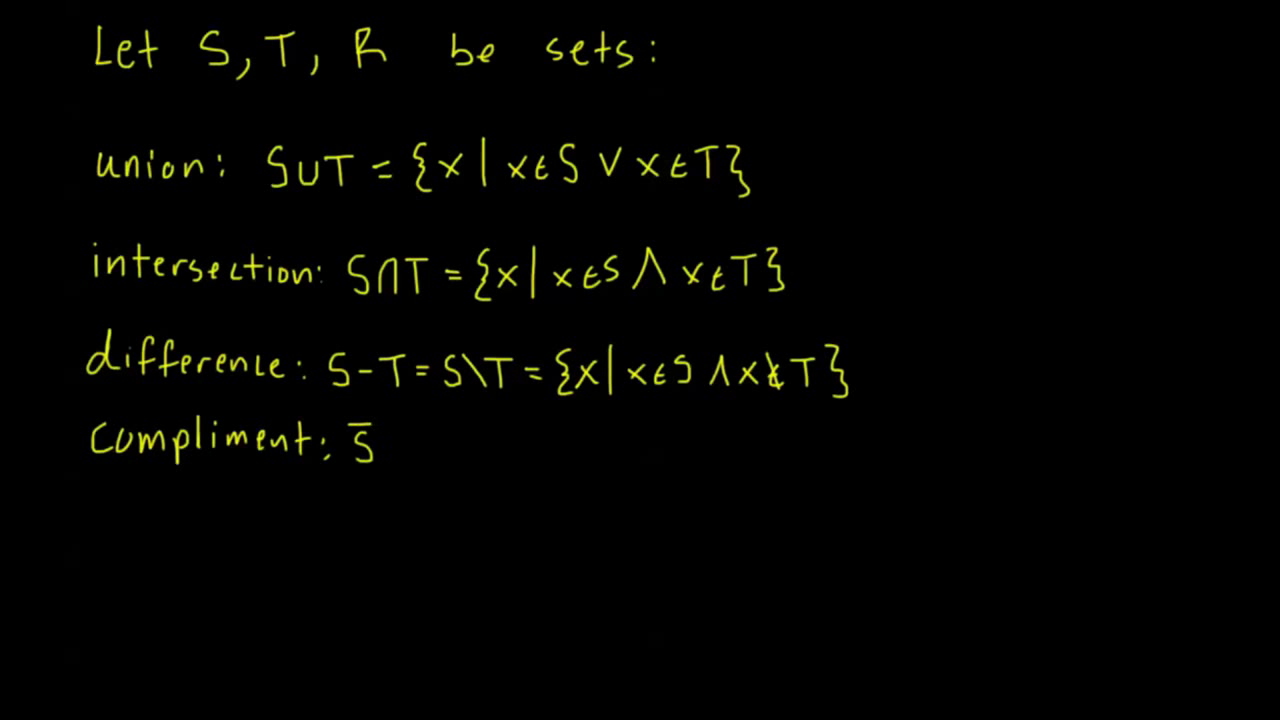 Let S, T, R be sets:
union: S∪T = {x | x∈S ∨ x∈T}
intersection: S∩T = {x | x∈S ∧ x∈T}
difference: S-T = S\T = {x | x∈S ∧ x∉T}
compliment: S̅